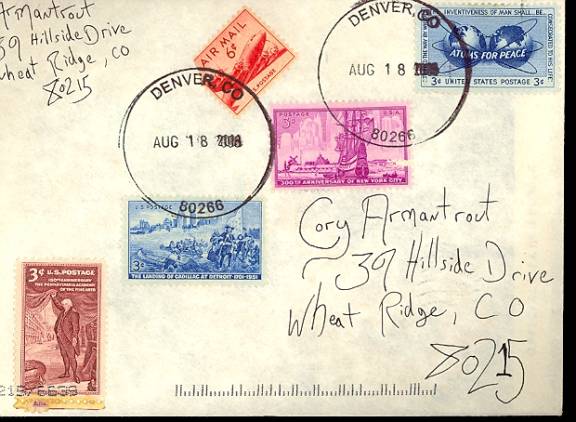 Armantrout
39 Hillside Drive
Wheat Ridge, CO
80215
AIR MAIL
6¢
U.S. POSTAGE
DENVER, CO
AUG 18
80266
DENVER, CO
AUG 18
80266
INVENTIVENESS OF MAN SHALL BE
CONSECRATED TO HIS LIFE
ATOMS FOR PEACE
3¢ UNITED STATES POSTAGE 3¢
POSTAGE U.S.A.
3¢
300TH ANNIVERSARY OF NEW YORK CITY
U.S. POSTAGE
3¢
THE LANDING OF CADILLAC AT DETROIT·1701-1951
Cory Armantrout
~39 Hillside Drive
Wheat Ridge, CO
80215
3¢ U.S. POSTAGE
150TH ANNIVERSARY
THE PENNSYLVANIA ACADEMY
OF THE FINE ARTS